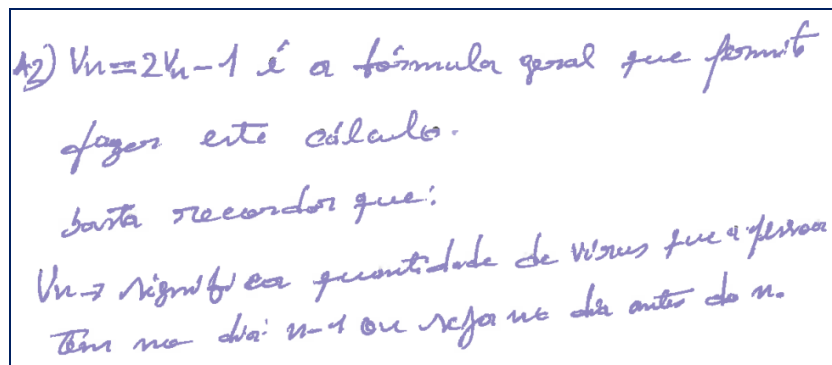 A2) Vn=2Vn-1 é a fórmula geral que permite
fazer este cálculo.
basta recordar que:
Vn → significa quantidade de vírus que a pessoa
têm no dia: n-1 ou seja no dia antes do n.